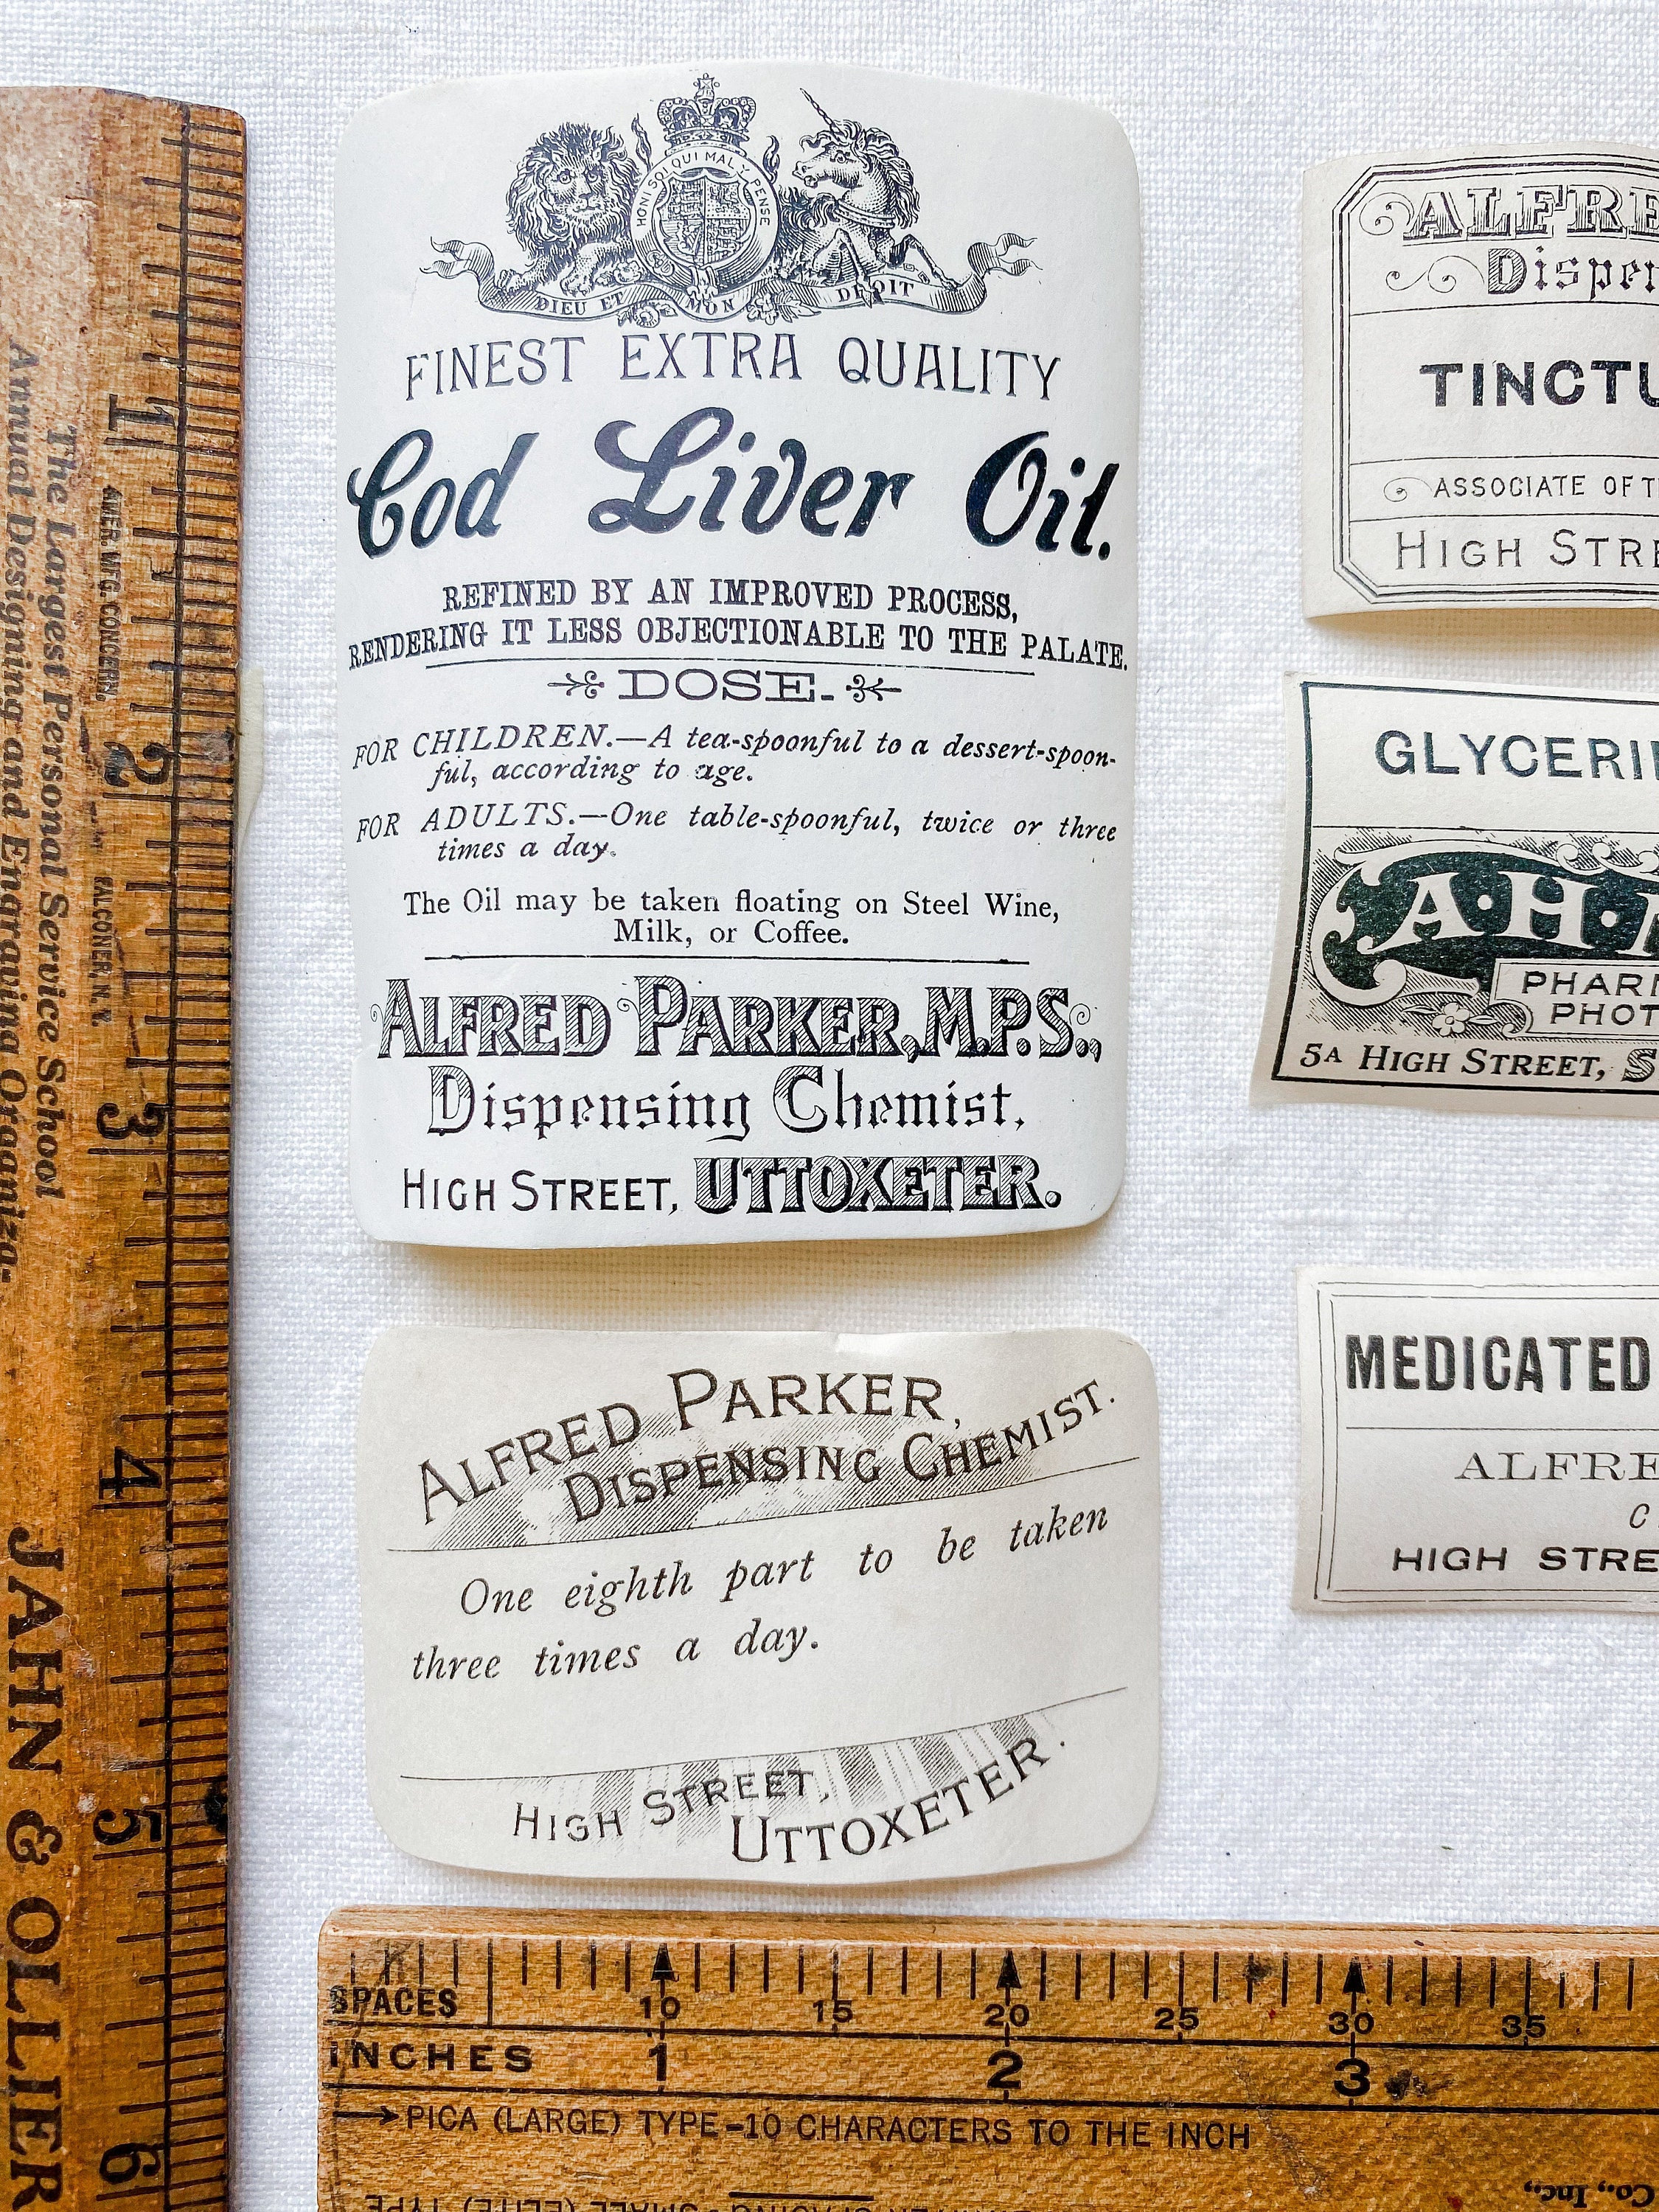 HONI SOI QUI MAL Y PENSE
DIEU ET MON DROIT
FINEST EXTRA QUALITY
Cod Liver Oil.
REFINED BY AN IMPROVED PROCESS,
RENDERING IT LESS OBJECTIONABLE TO THE PALATE.
DOSE.
FOR CHILDREN.—A tea-spoonful to a dessert-spoon-
ful, according to age.
FOR ADULTS.—One table-spoonful, twice or three
times a day.
The Oil may be taken floating on Steel Wine,
Milk, or Coffee.
ALFRED PARKER, M.P.S.,
Dispensing Chemist,
HIGH STREET, UTTOXETER.
ALFRED PARKER,
DISPENSING CHEMIST.
One eighth part to be taken
three times a day.
HIGH STREET,
UTTOXETER.
ALFRE
Dispen
TINCTU
ASSOCIATE OF T
HIGH STRE
GLYCERI
A·H·
PHAR
PHOT
5A HIGH STREET, S
MEDICATED
ALFRE
C
HIGH STRE
1
2
3
4
5
6
AMER. MFG. CONCERN,
FALCONER, N.Y.
The Largest Personal Service School
Annual Designing and Engraving Organiza-
JAHN & OLLIER
SPACES 10 15 20 25 30 35
INCHES 1 2 3
PICA (LARGE) TYPE-10 CHARACTERS TO THE INCH
Co., Inc.,